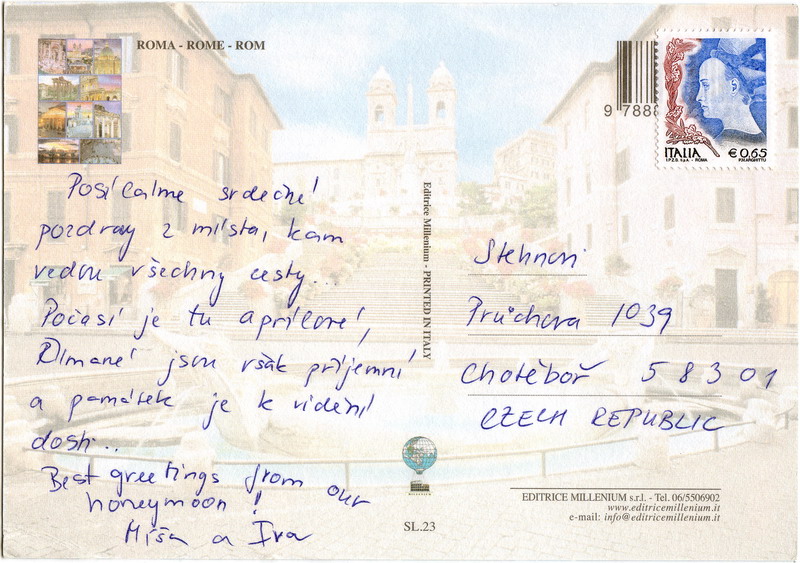 ROMA - ROME - ROM
9 7888
ITALIA € 0,65
I.P.Z.S. S.p.A. - ROMA P.N.ARGHITTU
Posíláme srdečné
pozdravy z místa, kam
vedou všechny cesty...
Počasí je tu aprílové,
Římané jsou však příjemní
a památek je k vidění
dosti...
Best greetings from our
honeymoon!
Míša a Iva
Editrice Millenium - PRINTED IN ITALY
Stehnovi
Průchova 1039
Chotěboř 58301
CZECH REPUBLIC
SL.23
EDITRICE MILLENIUM s.r.l. - Tel. 06/5506902
www.editricemillenium.it
e-mail: info@editricemillenium.it